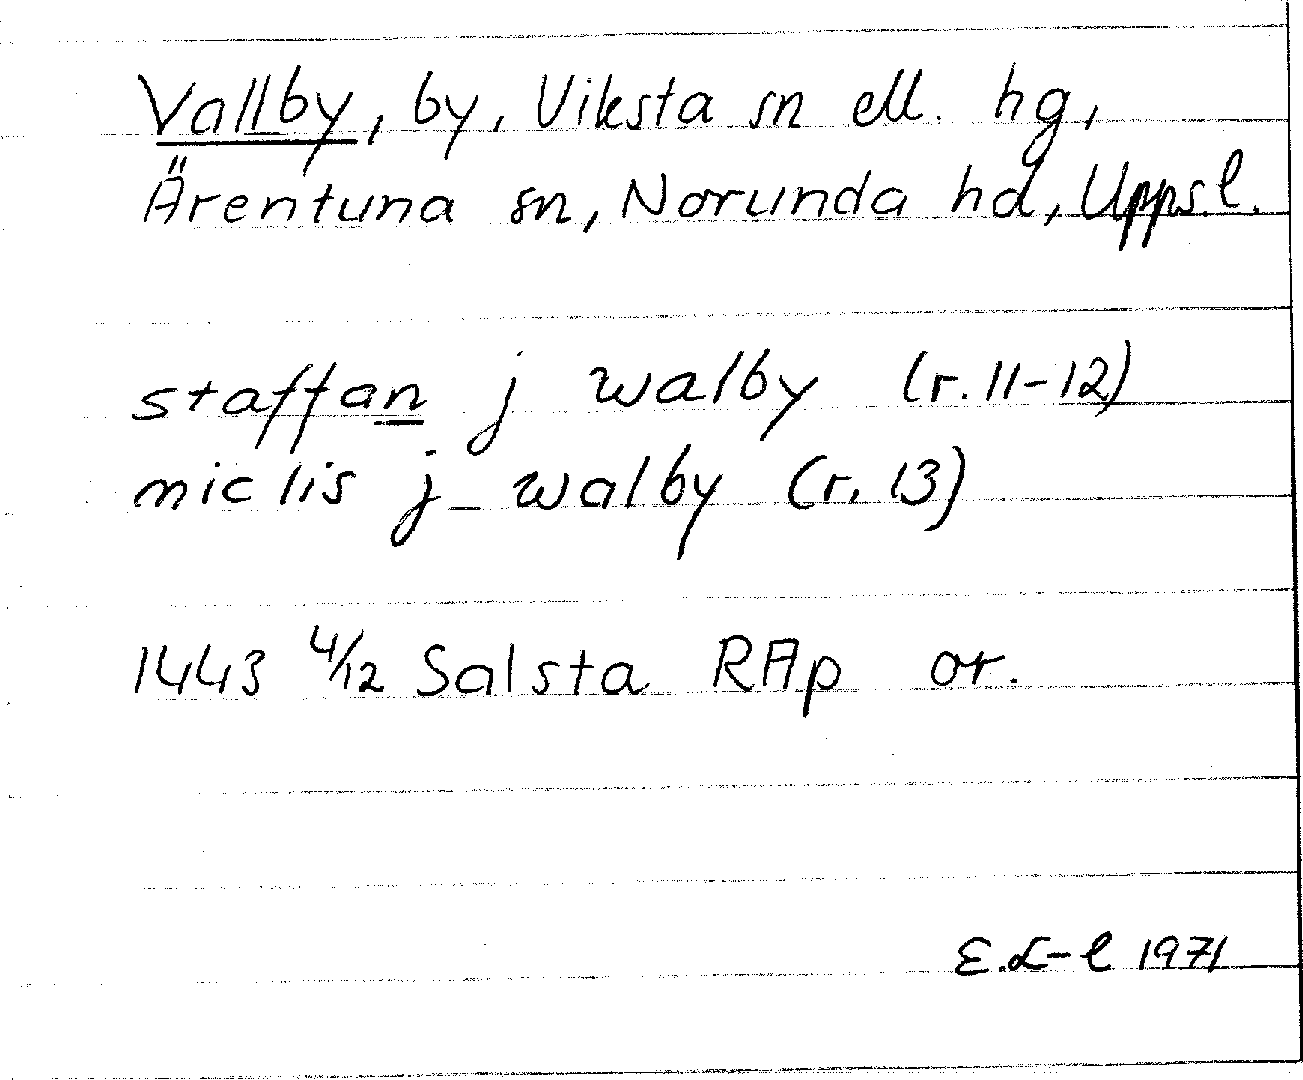 Vallby, by, Viksta sn ell. hg,
Ärentuna sn, Norunda hd, Upps.l.
staffan j walby (r. 11-12)
miclis j walby (r. 13)
1443 4/12 Salsta RAp or.
E.L-l 1971